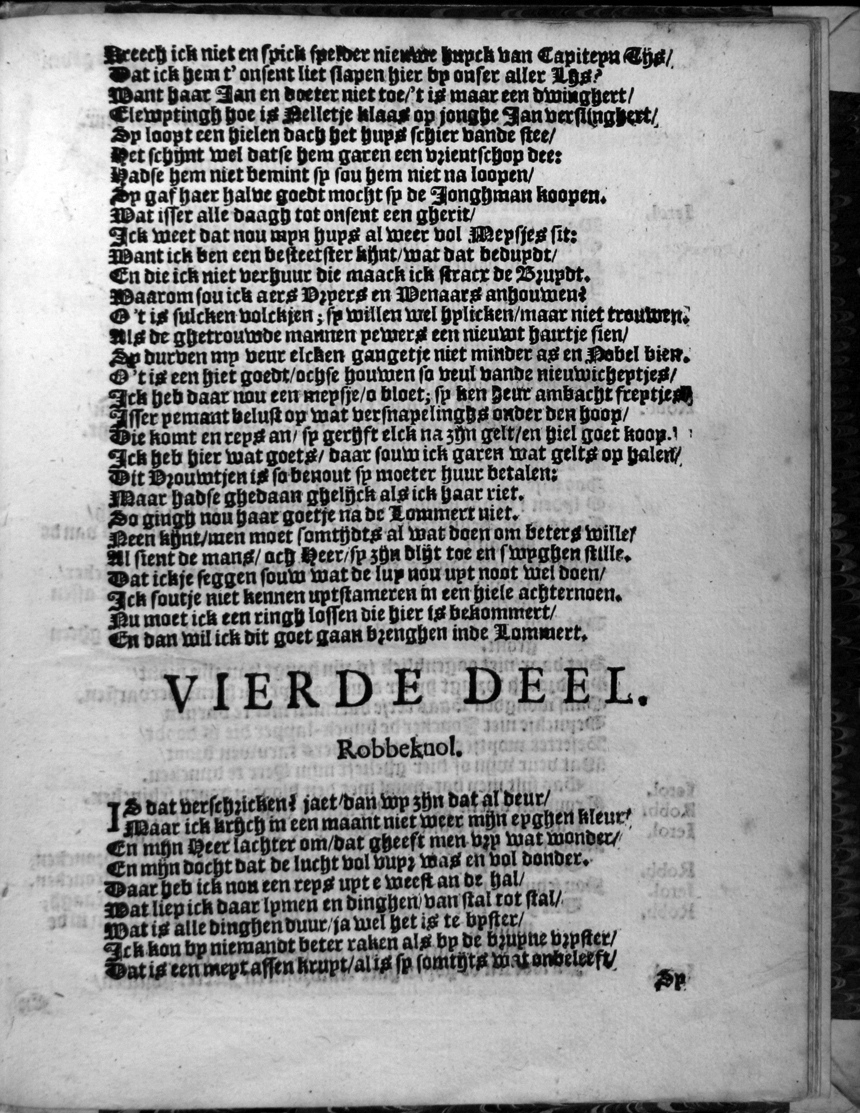 Kreech ick niet en spick spelder nieuwe huyck van Capiteyn Thys/
Dat ick hem t'onsent liet slapen hier by onser aller Lys?
Want haar Jan en doeter niet toe/'t is maar een dwinghert/
Elewytingh hoe is Nelletje klaas op jonghe Jan verslinghert/
Sy loopt een hielen dach het huys schier vande stee/
Het schijnt wel datse hem garen een vrientschop dee:
Hadse hem niet bemint sy sou hem niet na loopen/
Sy gaf haer halve goedt mocht sy de Jonghman koopen.
Wat isser alle daagh tot onsent een gherit/
Ick weet dat nou myn huys al weer vol Meysjes sit:
Want ick ben een besteetster kijnt/wat dat beduydt/
En die ick niet verhuur die maack ick stracx de Bruydt.
Waarom sou ick aers Vryers en Wenaars anhouwen?
O 't is sulcken volckjen; sy willen wel hylicken/maar niet trouwen.
Als de ghetrouwde mannen yewers een nieuwt hairtje sien/
Sy durven my veur elcken gangetje niet minder as en Nobel bien.
O 't is een hiet goedt/ochse houwen so veul vande nieuwicheytjes/
Ick heb daar nou een meysje/o bloet; sy ken heur ambacht freytjes
Isser yemant belust op wat versnapelinghs onder den hoop/
Die komt en reys an/ sy gerijft elck na zijn gelt/en hiel goet koop.
Ick heb hier wat goets/ daar souw ick garen wat gelts op halen/
Dit Vrouwtjen is so benout sy moeter huur betalen:
Maar hadse ghedaan ghelijck als ick haar riet.
So gingh nou haar goetje na de Lommert niet.
Neen kijnt/men moet somtijdts al wat doen om beters wille/
Al sient de mans/ och Heer/sy zijn blijt toe en swyghen stille.
Dat ickje seggen souw wat de luy nou uyt noot wel doen/
Ick soutje niet kennen uytstameren in een hiele achternoen.
Nu moet ick een ringh lossen die hier is bekommert/
En dan wil ick dit goet gaan brenghen inde Lommert.
VIERDE DEEL.
Robbeknol.
IS dat verschricken? jaet/dan wy zijn dat al deur/
Maar ick krijch in een maant niet weer mijn eyghen kleur/
En mijn Heer lachter om/dat gheeft men vry wat wonder/
En mijn docht dat de lucht vol vuyr was en vol donder.
Daar heb ick nou een reys uyt e weest an de hal/
Wat liep ick daar lymen en dinghen/van stal tot stal/
Wat is alle dinghen duur/ja wel het is te byster/
Ick kon by niemandt beter raken als by de bruyne vryster/
Dat is een meyt assen kruyt/al is sy somtijts wat onbeleeft/
Sy